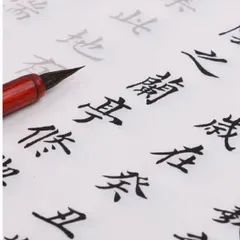 歲在癸丑
之蘭亭修
此地